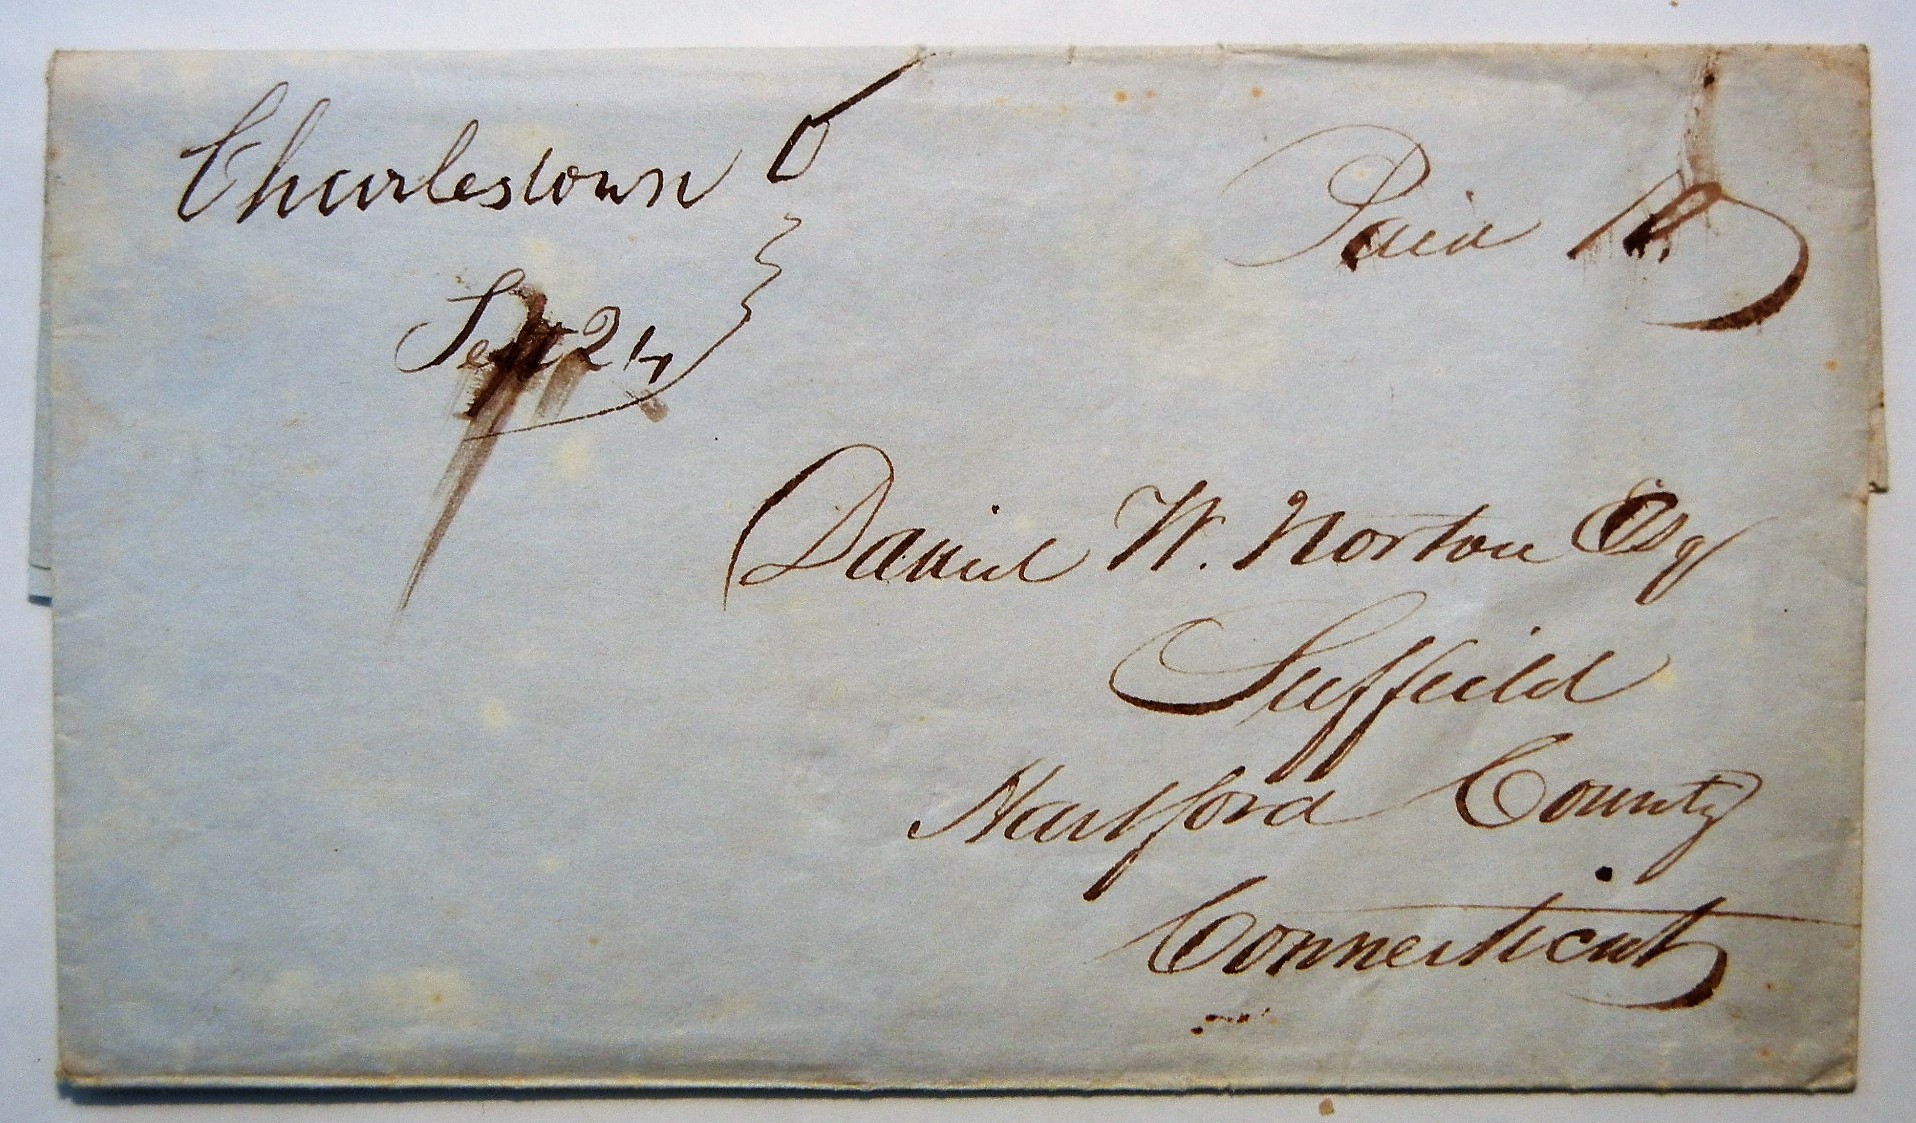 Charlestown O
Sept 24
Paid
Daniel W. Norton Esq
Suffield
Hartford County
Connecticut